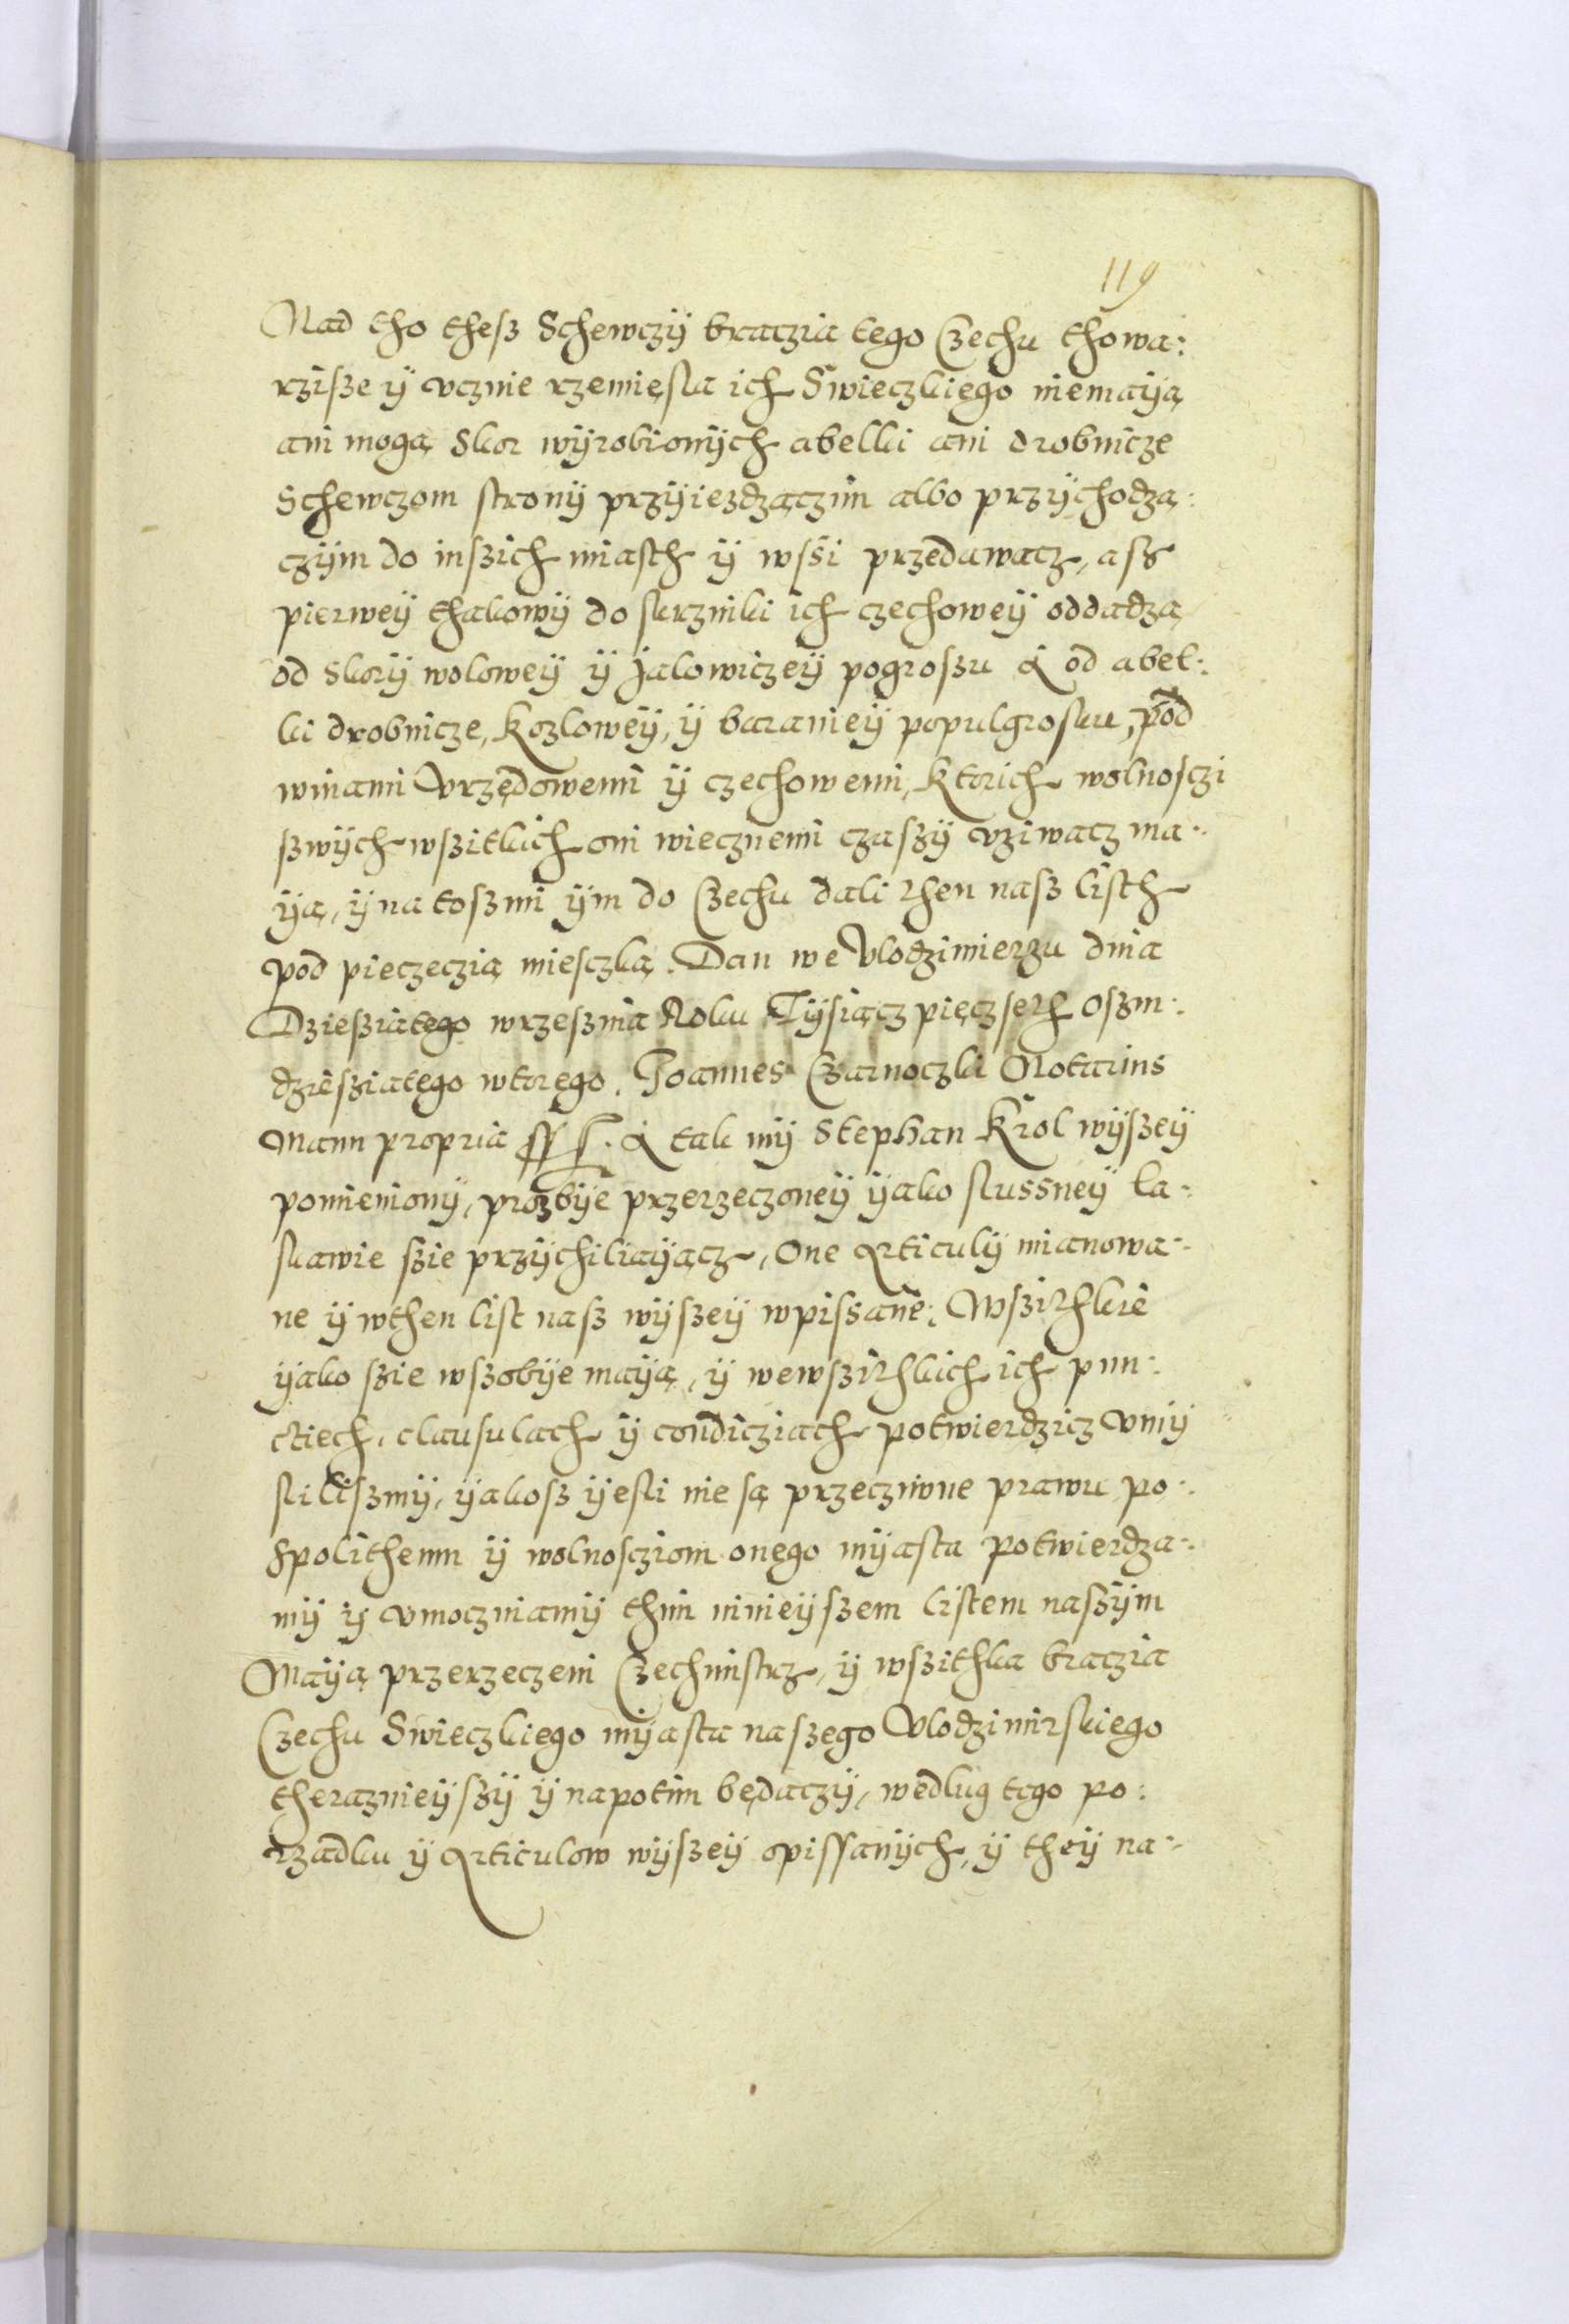 119
Nad tho thesz Schewczÿ braczia tego Czechu thowa:
rzisze ÿ vcznie rzemięsla ich Swieczkiego niemaÿą
ani mogą Skor wÿrobionÿch abelki ani drobnicze
Schewczom stronÿ przÿiezdzączim albo przÿchodzą:
czÿm do inszich miasth ÿ wsśi przedawacz, asz
pierweÿ thakowÿ do skrzinki ich czechoweÿ oddadzą
od Skorÿ woloweÿ ÿ Jalowiczeÿ pogroszu A od abel:
ki drobnicze, Kozloweÿ, ÿ baranieÿ populgrosku, pod
winami Vrzędowemi ÿ czechowemi, Ktorich wolnosczi
szwÿch wszitkich oni wiecznemi czaszÿ vziwacz ma:
ÿą, ÿ na toszmi ÿm do Czechu dali then nasz listh
pod pieczeczią miesczką. Dan we Vlodzimierzu dnia
Dziesziątego wrzesznia Roku Tÿsiącz pięczseth oszm:
dziesziatego wtorego. Joannes Czarnoczki Notarius
Manu propria ssst. A tak mÿ Stephan Krol wÿszeÿ
pomienionÿ, prozbÿe przerzeczoneÿ ÿako slussneÿ la:
skawie szie przÿchiliaÿącz, One Articulÿ mianowa:
ne ÿ wthen list nasz wÿszeÿ wpissane: Wszithkie
ÿako szie wszobÿe maÿą, ÿ wewszithkich ich pun:
ctiech, clausulach ÿ condicziach potwierdzicz vmÿ
sliliszmÿ, ÿakosz ÿesli nie są przecziwne prawu po:
spolithemu ÿ wolnoscziom onego mÿasta potwierdza:
mÿ ÿ vmoczniamÿ thim ninieÿszem listem naszÿm
Maÿą przerzeczeni Czechmistrz, ÿ wszithka braczia
Czechu Swieczkiego mÿasta naszego Vlodzimirskiego
theraznieÿszÿ ÿ napotim będaczÿ, wedlug tego po:
rzadku ÿ Articulow wÿszeÿ opissanÿch, ÿ theÿ na: